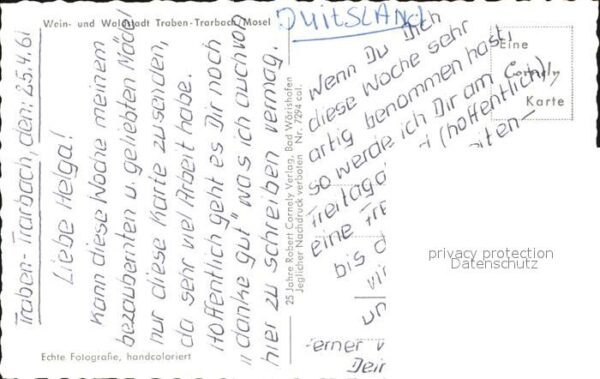 Wein- und Waldstadt Traben-Trarbach/Mosel
DUITSLAND
Traben-Trarbach, den: 25.4.61
Liebe Helga!
Kann diese Woche meinem
bezaubernten u. geliebten Mädel
nur diese Karte zusenden,
da sehr viel Arbeit habe.
Hoffentlich geht es Dir noch
"danke gut" was ich auch von
hier zu schreiben vermag.
Wenn Du Dich
diese Woche sehr
artig benommen hast,
so werde ich Dir am
Freitag (hoffentlich)
eine
bis
Eine
Cornely
Karte
25 Jahre Robert Cornely Verlag, Bad Wörishofen
Jeglicher Nachdruck verboten Nr. 7294 cal.
privacy protection
Datenschutz
Echte Fotografie, handcoloriert